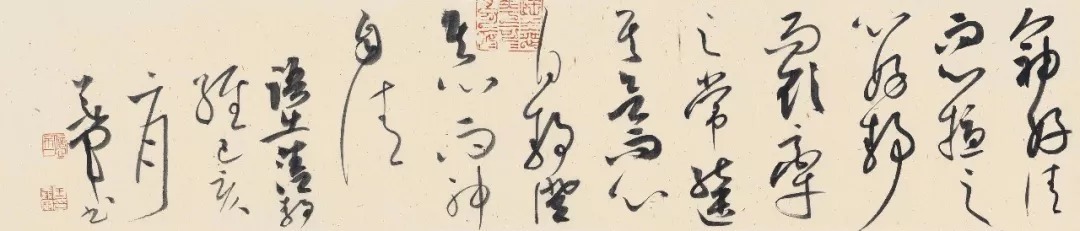 人神好清
而心擾之
心好静
而欲牽
之常能遣
其而心
自静澄
其心而神
自清
語出清静
經己亥
月
書